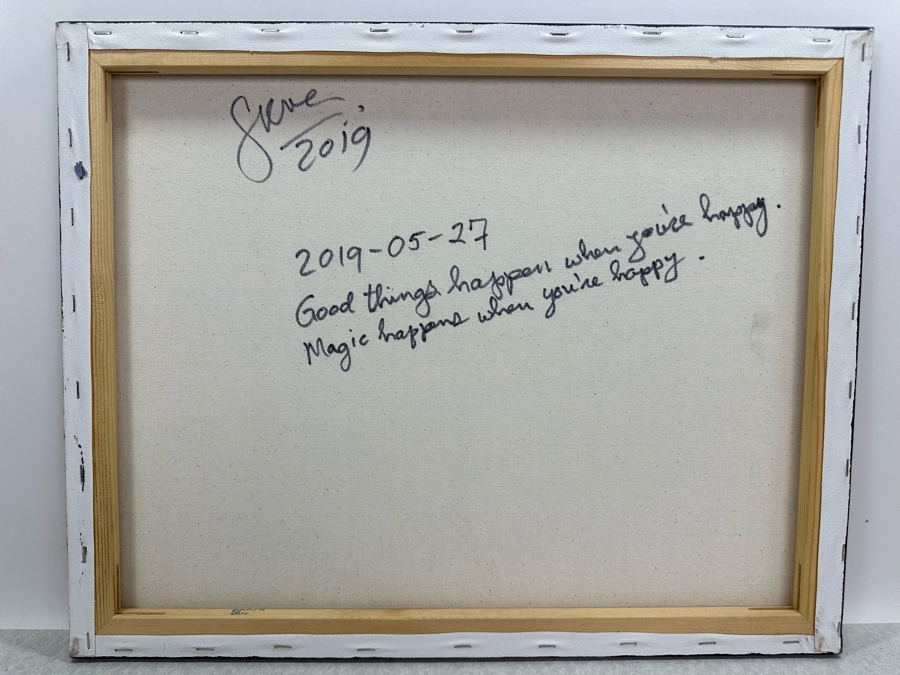 2019
2019-05-27
Good things happen when you're happy.
Magic happens when you're happy.